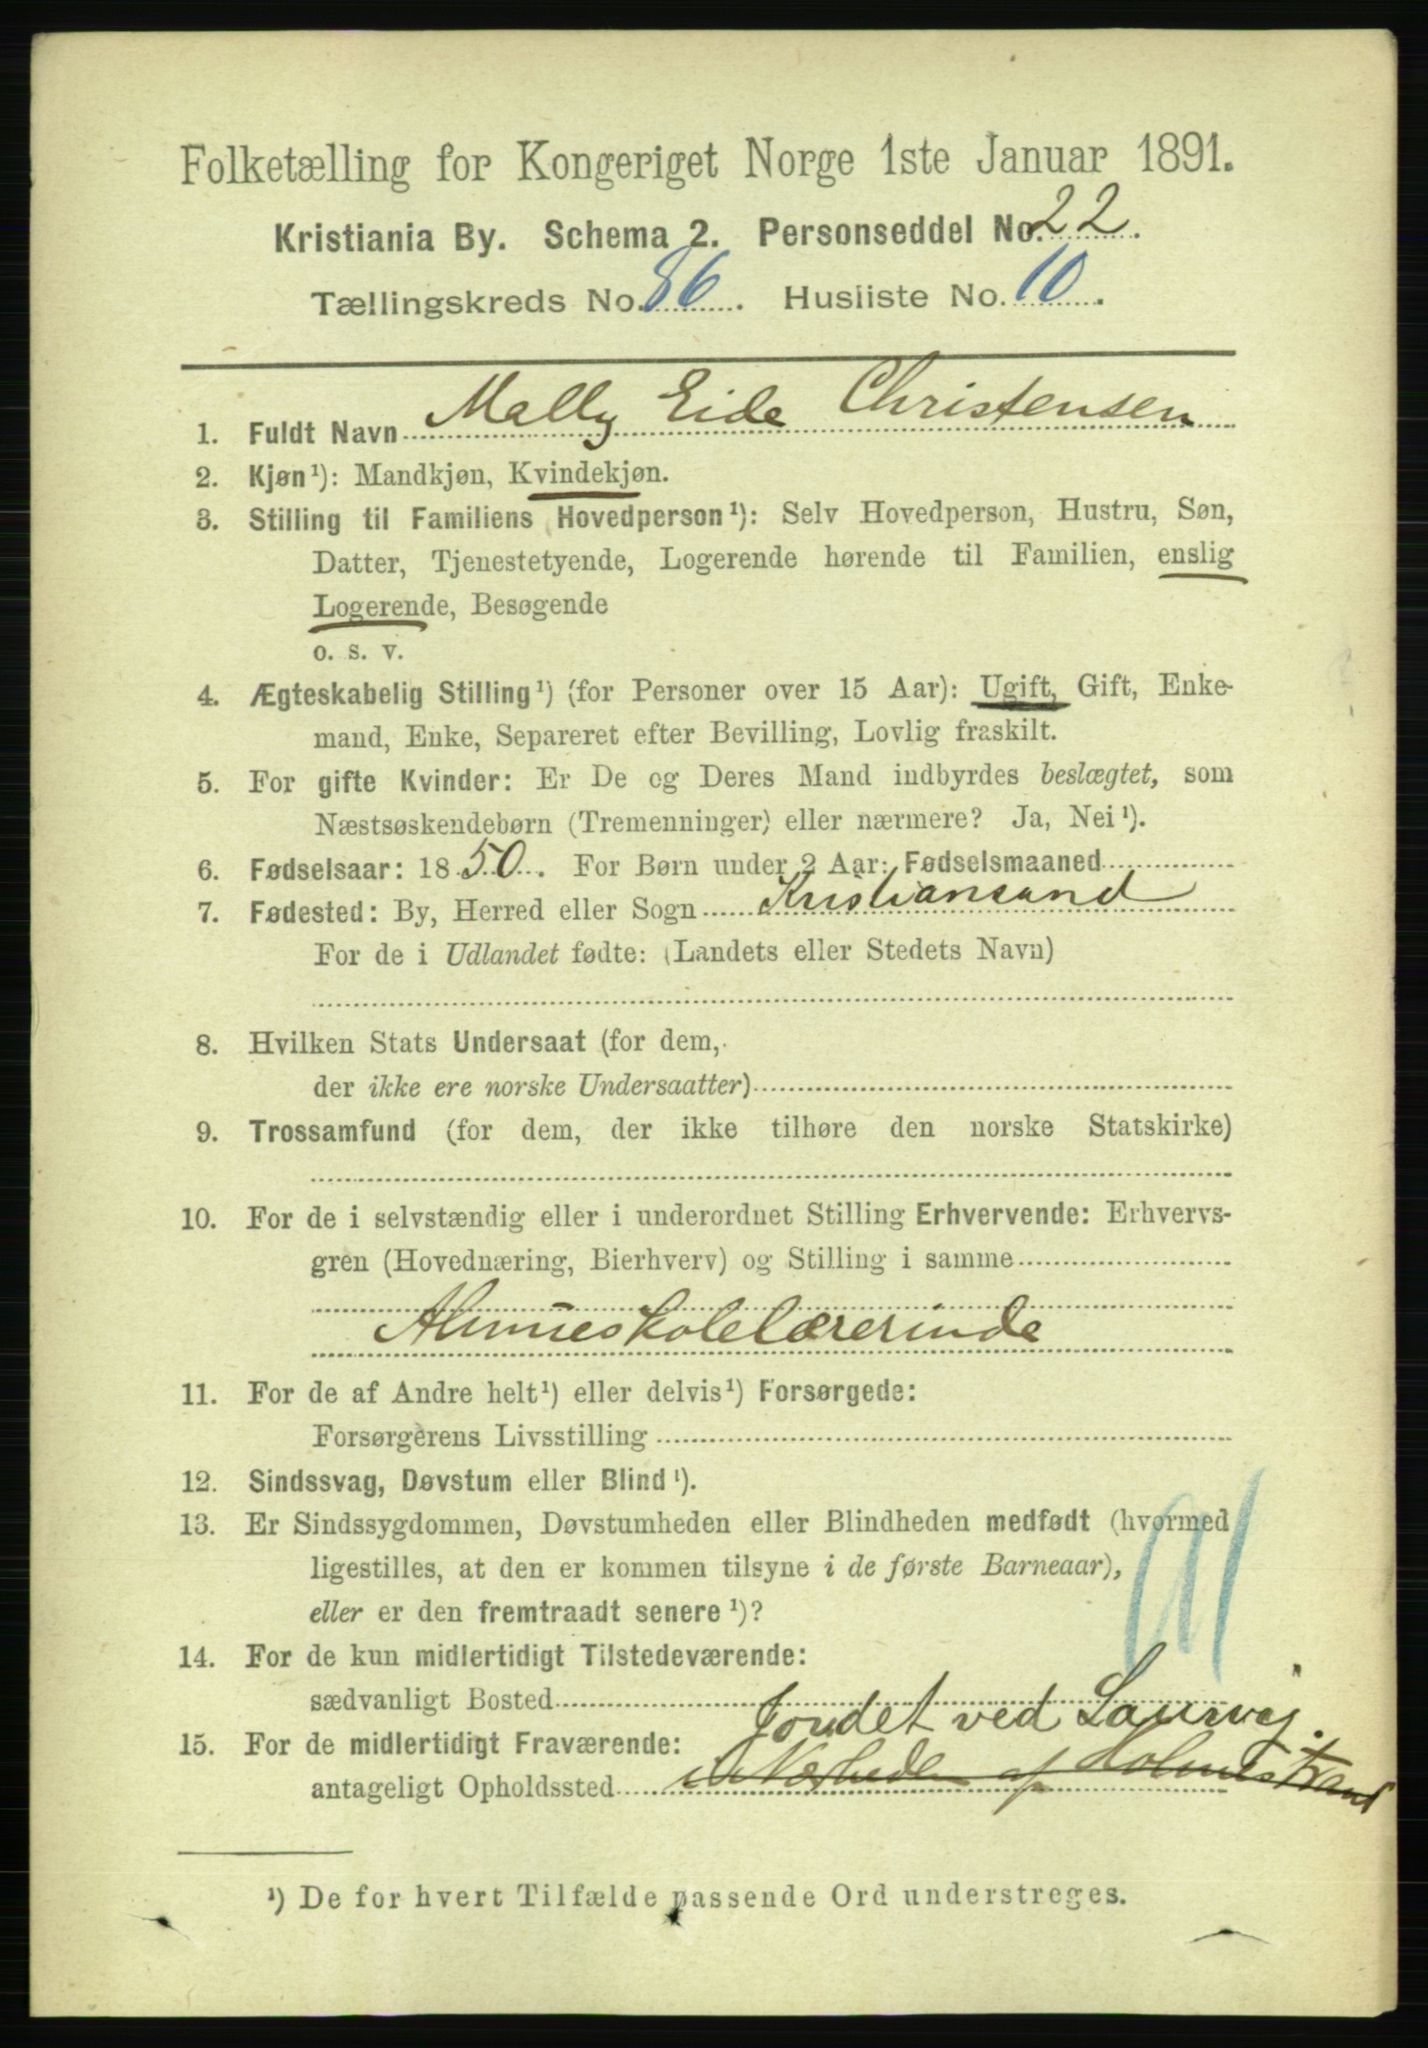 Folketælling for Kongeriget Norge 1ste Januar 1891.
Kristiania By. Schema 2. Personseddel No. 22.
Tællingskreds No. 86. Husliste No. 10.
1. Fuldt Navn Mally Eide Christensen
2. Kjøn¹): Mandkjøn, Kvindekjøn.
3. Stilling til Familiens Hovedperson¹): Selv Hovedperson, Hustru, Søn,
Datter, Tjenestetyende, Logerende hørende til Familien, enslig
Logerende, Besøgende
o. s. v.
4. Ægteskabelig Stilling¹) (for Personer over 15 Aar): Ugift, Gift, Enke-
mand, Enke, Separeret efter Bevilling, Lovlig fraskilt.
5. For gifte Kvinder: Er De og Deres Mand indbyrdes beslægtet, som
Næstsøskendebørn (Tremenninger) eller nærmere? Ja, Nei¹).
6. Fødselsaar: 1850. For Børn under 2 Aar: Fødselsmaaned
7. Fødested: By, Herred eller Sogn Kristiansand
For de i Udlandet fødte: (Landets eller Stedets Navn)
8. Hvilken Stats Undersaat (for dem,
der ikke ere norske Undersaatter)
9. Trossamfund (for dem, der ikke tilhøre den norske Statskirke)
10. For de i selvstændig eller i underordnet Stilling Erhvervende: Erhvervs-
gren (Hovednæring, Bierhverv) og Stilling i samme
Almueskolelærerinde
11. For de af Andre helt¹) eller delvis¹) Forsørgede:
Forsørgerens Livsstilling
12. Sindssvag, Døvstum eller Blind¹).
13. Er Sindssygdommen, Døvstumheden eller Blindheden medfødt (hvormed
ligestilles, at den er kommen tilsyne i de første Barneaar),
eller er den fremtraadt senere¹)?
14. For de kun midlertidigt Tilstedeværende:
sædvanligt Bosted
Jondet ved Laurvig.
15. For de midlertidigt Fraværende:
antageligt Opholdssted i Nærheden af Holmestrand
¹) De for hvert Tilfælde passende Ord understreges.